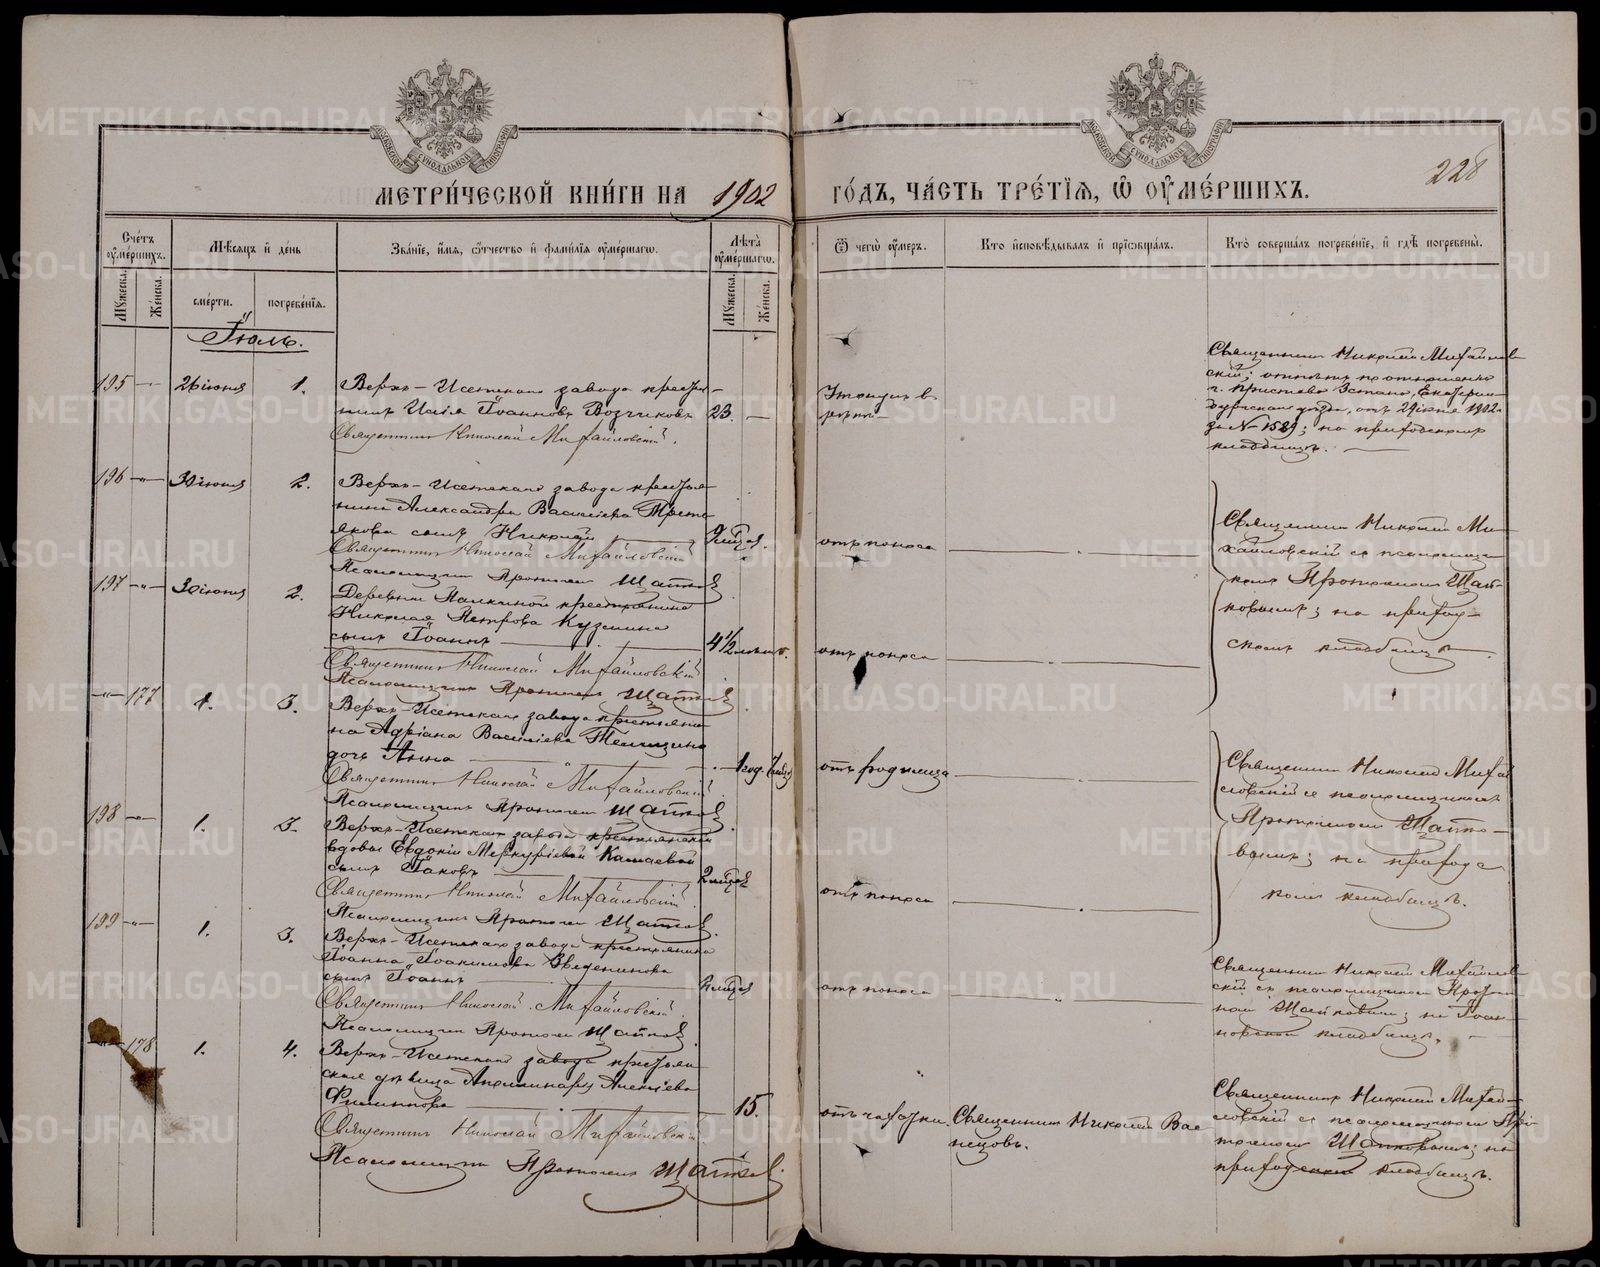 МЕТРИ́ЧЕСКОЙ КНИ́ГИ НА 1902 ГО́ДЪ, ЧА́СТЬ ТРЕ́ТІѦ, Ѿ ОУ҆МЕ́РШИХЪ.
228
Сче́тъ оу҆ме́ршихъ.
Мѣ́сяцъ и҆ де́нь
Зва́нїе, и҆́мя, ѻ҆́тчество и҆ фами́лїя оу҆ме́ршагѡ.
Лѣ́та оу҆ме́ршагѡ.
Ѿ чегѡ̀ оу҆́меръ.
Кто̀ и҆сповѣ́дывалъ и҆ прїѡбща́лъ.
Кто̀ соверша́лъ погребе́нїе, и҆ гдѣ̀ погребены̀.
Му́жеска.
Же́нска.
сме́рти.
погребе́нїя.
Му́жеска.
Же́нска.
Іюль.
195 26 іюня 1.
Верхъ-Исетскаго завода крестья-
нинъ Илія Іоанновъ Возчиковъ 23.
Священникъ Николай Михайловскій.
Утонулъ въ
Священникъ Николай Михайлов-
скій; отпѣтъ по отношенію
г. Пристава Эстана, Екатерин-
бургскаго уѣзда, отъ 29 іюня 1902 г.
за № 1589; на приходскомъ
кладбищѣ.
196 30 іюня 2.
Верхъ-Исетскаго завода крестья-
нина Александра Василіева Треть-
якова сынъ Николай
Священникъ Николай Михайловскій
Псаломщикъ Протогенъ Шатковъ
отъ поноса
Священникъ Николай Ми-
хайловскій съ псаломщи-
комъ Протогеномъ Шат-
ковымъ; на приход-
скомъ кладбищѣ.
197 30 іюня 2.
Деревни Палкиной крестьянина
Николая Петрова Кузмина
сынъ Іоаннъ 4 1/2
Священникъ Николай Михайловскій
Псаломщикъ Протогенъ Шатковъ
отъ поноса
177 1. 3.
Верхъ-Исетскаго завода крестьяни-
на Адріана Василіева
дочь Анна 1 год.
Священникъ Николай Михайловскій
Псаломщикъ Протогенъ Шатковъ
отъ родимца
Священникъ Николай Михай
ловскій съ псаломщикомъ
Протогеномъ Шатко-
вымъ; на приходс
комъ кладбищѣ.
198 1. 3.
Верхъ-Исетскаго завода крестьянской
вдовы Евдокіи Меркуріевой Кашаевой
сынъ Іаковъ 2 мѣсяц.
Священникъ Николай Михайловскій.
Псаломщикъ Протогенъ Шатковъ.
отъ поноса
199 1. 3.
Верхъ-Исетскаго завода крестьянина
Іоанна Іоакимова Зведенинова
сынъ Іоаннъ
Священникъ Николай Михайловскій.
Псаломщикъ Протогенъ Шатковъ
отъ поноса
Священникъ Николай Михайлов-
скій съ псаломщикомъ Протоге-
номъ Шатковымъ; на Іоан-
новскомъ кладбищѣ.
178 1. 4.
Верхъ-Исетскаго завода крестьян-
ская дѣвица Аполинарія Алексіева
Филиппова 15.
Священникъ Николай Михайловскій.
Псаломщикъ Протогенъ Шатковъ.
отъ чахотки.
Священникъ Николай
Священникъ Николай Михай-
ловскій съ псаломщикомъ Про-
тогеномъ Шатковымъ; на
приходскомъ кладбищѣ.
METRIKI.GASO-URAL.RU